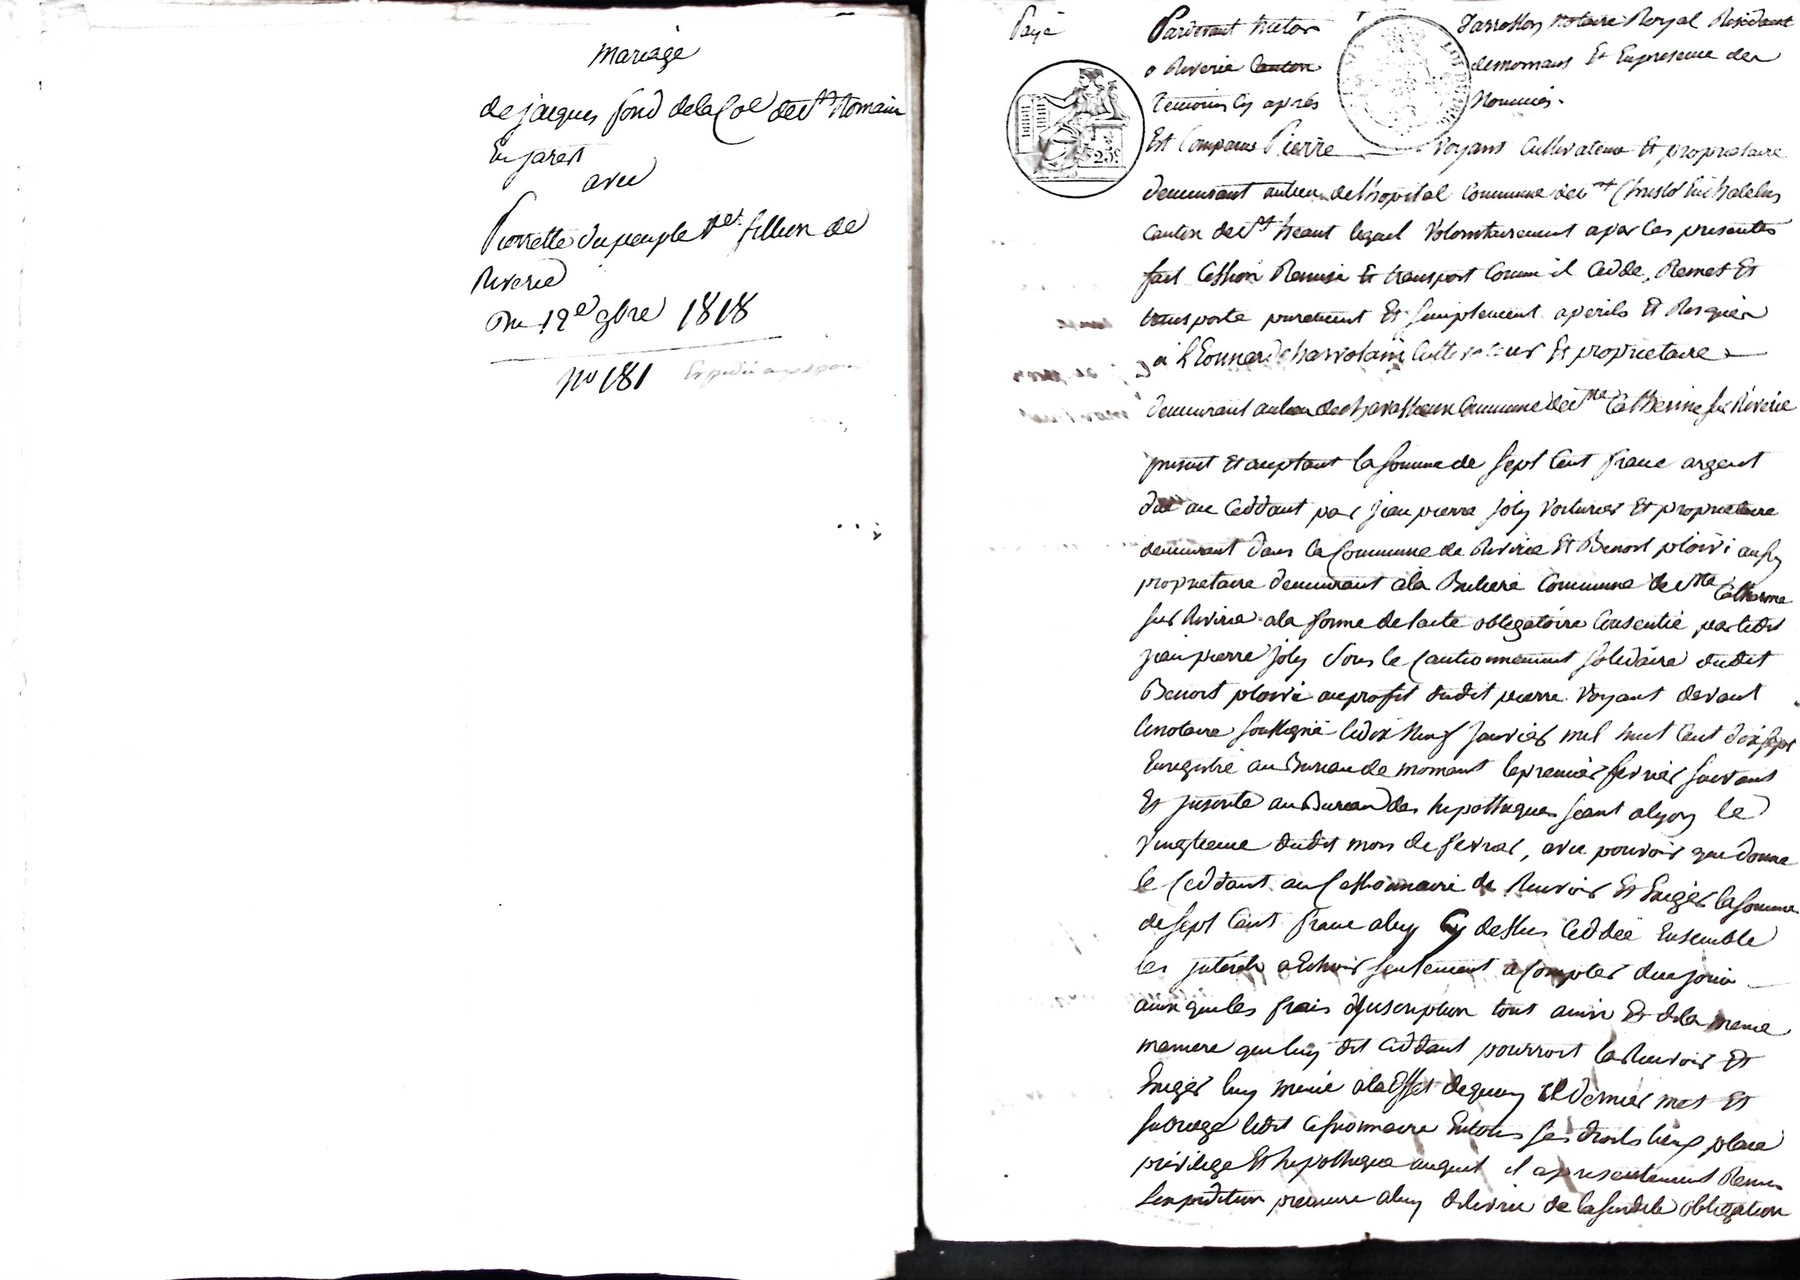 Mariage
de jacques fond dela Coe de St Romain
En jarest
avec
Pierrette Dupeuple Ve fillion de
Riverie
Du 12e 9bre 1818
No 181
Payé
Pardevant Notaire Royal Résidant
a Riverie canton de mornant Et En presence des
temoins Cy après Nommés.
Est Comparu Pierre Voyant Cultivateur Et proprietaire
demeurant au lieu de l'hopital Commune de St Christo En Chatelus
Canton de St heant lequel Volontairement a par Ces presentes
fait Cession Remise Et transport Comme il Cedde, Remet Et
transporte purement Et simplement a perils Et Risques
à Leonnard Cultivateur Et proprietaire
demeurant au lieu de Commune de Ste Catherine sur Riverie
present Et aceptant la somme de sept Cent franc argent
due au Ceddant par jean pierre joly Voiturier Et proprietaire
demeurant dans la Commune de Riverie Et Benoit aussy
proprietaire demeurant a la Commune de Ste Catherine
sur Riverie a la forme de l'acte obligatoire Consentie par ledit
jean pierre joly sous le Cautionnement solidaire dudit
Benoit au profit dudit pierre Voyant devant
le notaire soussigné le dix Neuf janvier mil huit Cent dix sept
Enregistré au Bureau de mornant le premier fevrier suivant
Et inscrite au Bureau des hypotheques séant a lyon le
vingtieme dudit mois de fevrier, avec pouvoir que donne
le Ceddant au Cessionnaire de Recevoir Et Exiger la somme
de sept Cent franc a luy Cy dessus Ceddée Ensemble
les interets a Echoir seulement a Compter de ce jour
ainsi que les frais d'inscription tout ainsi Et de la meme
maniere que luy dit Ceddant pourroit la Recevoir Et
Exiger luy meme a l'effet de quoy Ce dernier met Et
subroge ledit Cessionnaire En tous ses droits lieux place
privilege Et hypotheque auquel il a presentement Remis
l'expedition premiere a luy delivrée de la susdite obligation